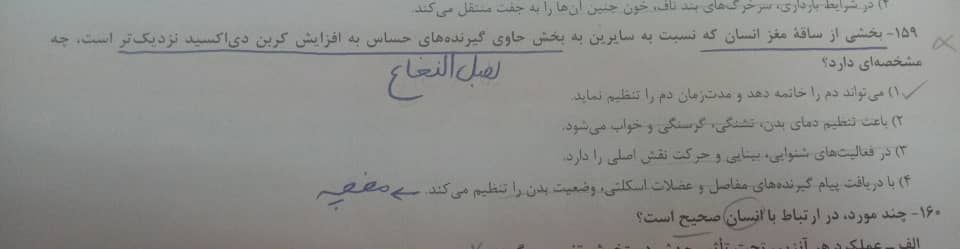 ۲) در شرایط بارداری، سرخرگ‌های بند ناف، خون جنین آن‌ها را به جفت منتقل می‌کند.
۱۵۹- بخشی از ساقهٔ مغز انسان که نسبت به سایرین به بخش حاوی گیرنده‌های حساس به افزایش کربن دی‌اکسید نزدیک‌تر است، چه
مشخصه‌ای دارد؟
بصل النخاع
۱) می‌تواند دم را خاتمه دهد و مدت‌زمان دم را تنظیم نماید.
۲) باعث تنظیم دمای بدن، تشنگی، گرسنگی و خواب می‌شود.
۳) در فعالیت‌های شنوایی، بینایی و حرکت نقش اصلی را دارد.
۴) با دریافت پیام گیرنده‌های مفاصل و عضلات اسکلتی، وضعیت بدن را تنظیم می‌کند. ← مخچه
۱۶۰- چند مورد، در ارتباط با انسان صحیح است؟